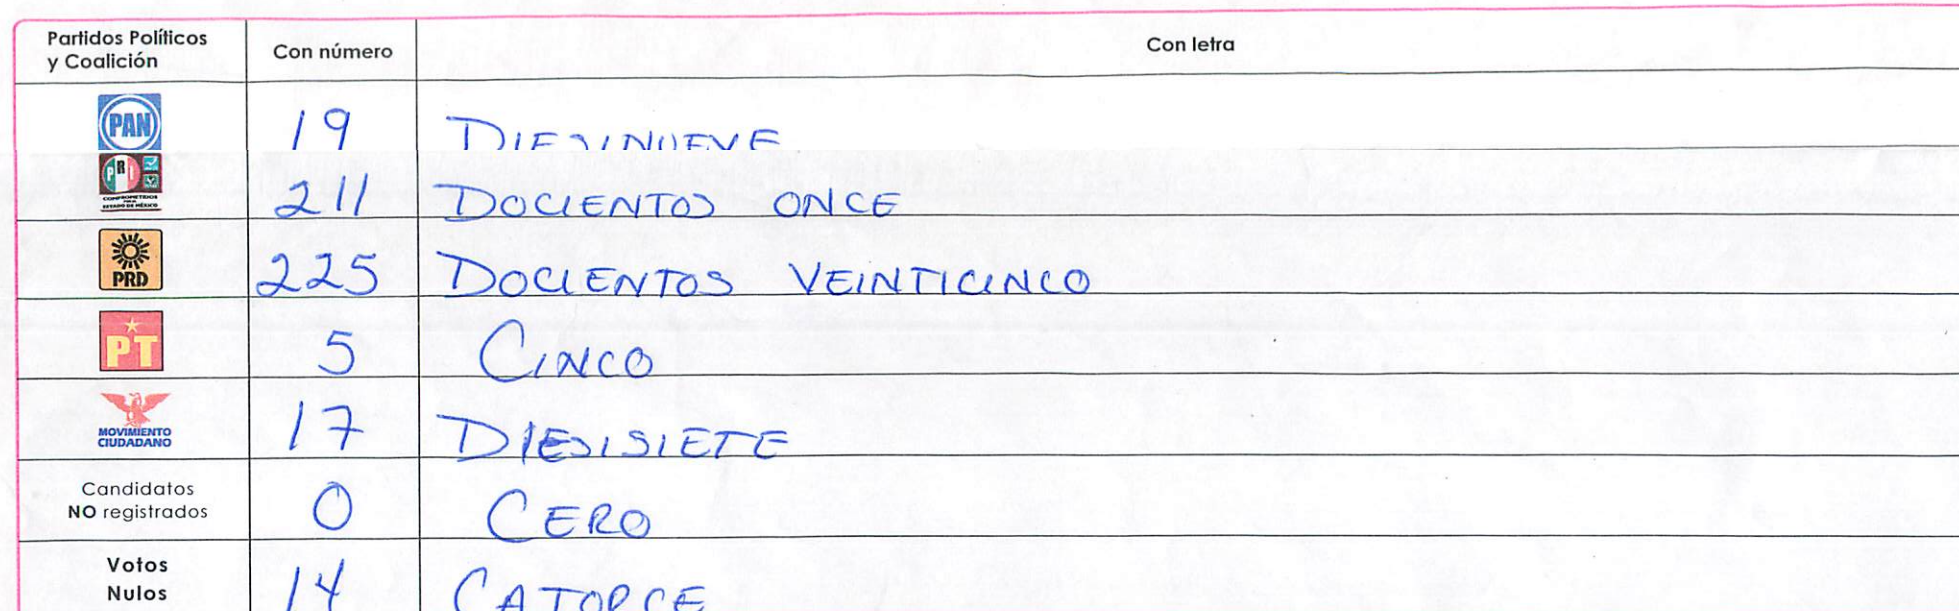 Partidos Políticos y Coalición Con número Con letra
PAN 19 DIESINUEVE
PRI COMPROMETIDOS ESTADO DE MÉXICO 211 DOCIENTOS ONCE
PRD 225 DOCIENTOS VEINTICINCO
PT 5 CINCO
MOVIMIENTO CIUDADANO 17 DIESISIETE
Candidatos NO registrados 0 CERO
Votos Nulos 14 CATORCE